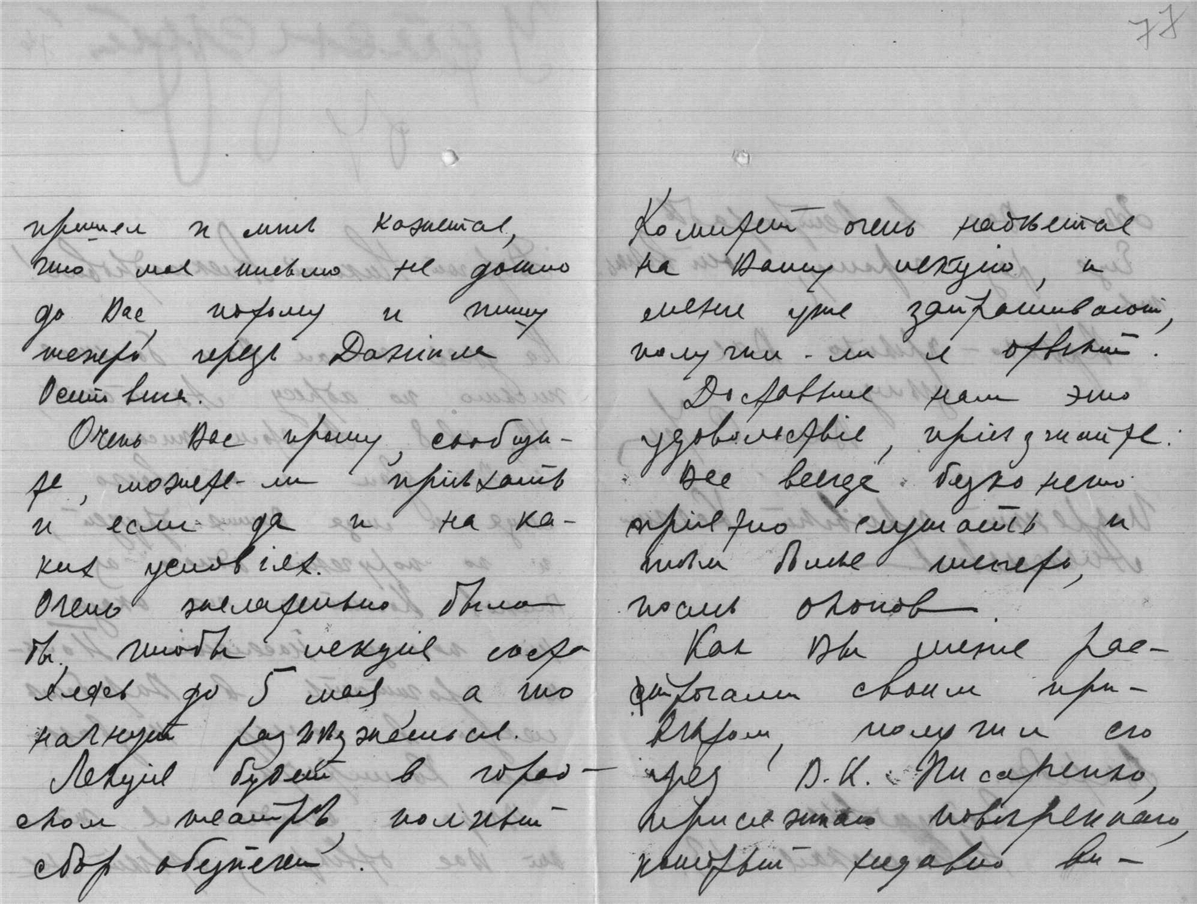 пришел и мнѣ кажется,
что мое письмо не дошло
до Вас, потому и пишу
теперь через Даніила
Осиповича.
Очень Вас прошу, сообщи-
те, можете-ли пріѣхать
и если да и на ка-
ких условіях.
Очень желательно было
бы, чтобы лекція состо-
ялась до 5 мая, а то
начнут разъѣзжаться.
Лекція будет в город-
ском театрѣ, полный
сбор обезпечен.
77
Комитет очень надѣется
на Вашу лекцію, и
меня уже запрашивают,
получил-ли я отвѣт.
Доставьте нам это
удовольствіе, пріѣзжайте.
Вас всегда безконечно
пріятно слушать и
тѣм болѣе теперь,
послѣ окопов
Как Вы меня рас-
трогали своим при-
вѣтом, получил его
чрез В.К. Писаренко,
присяжнаго повѣреннаго,
который недавно вы-